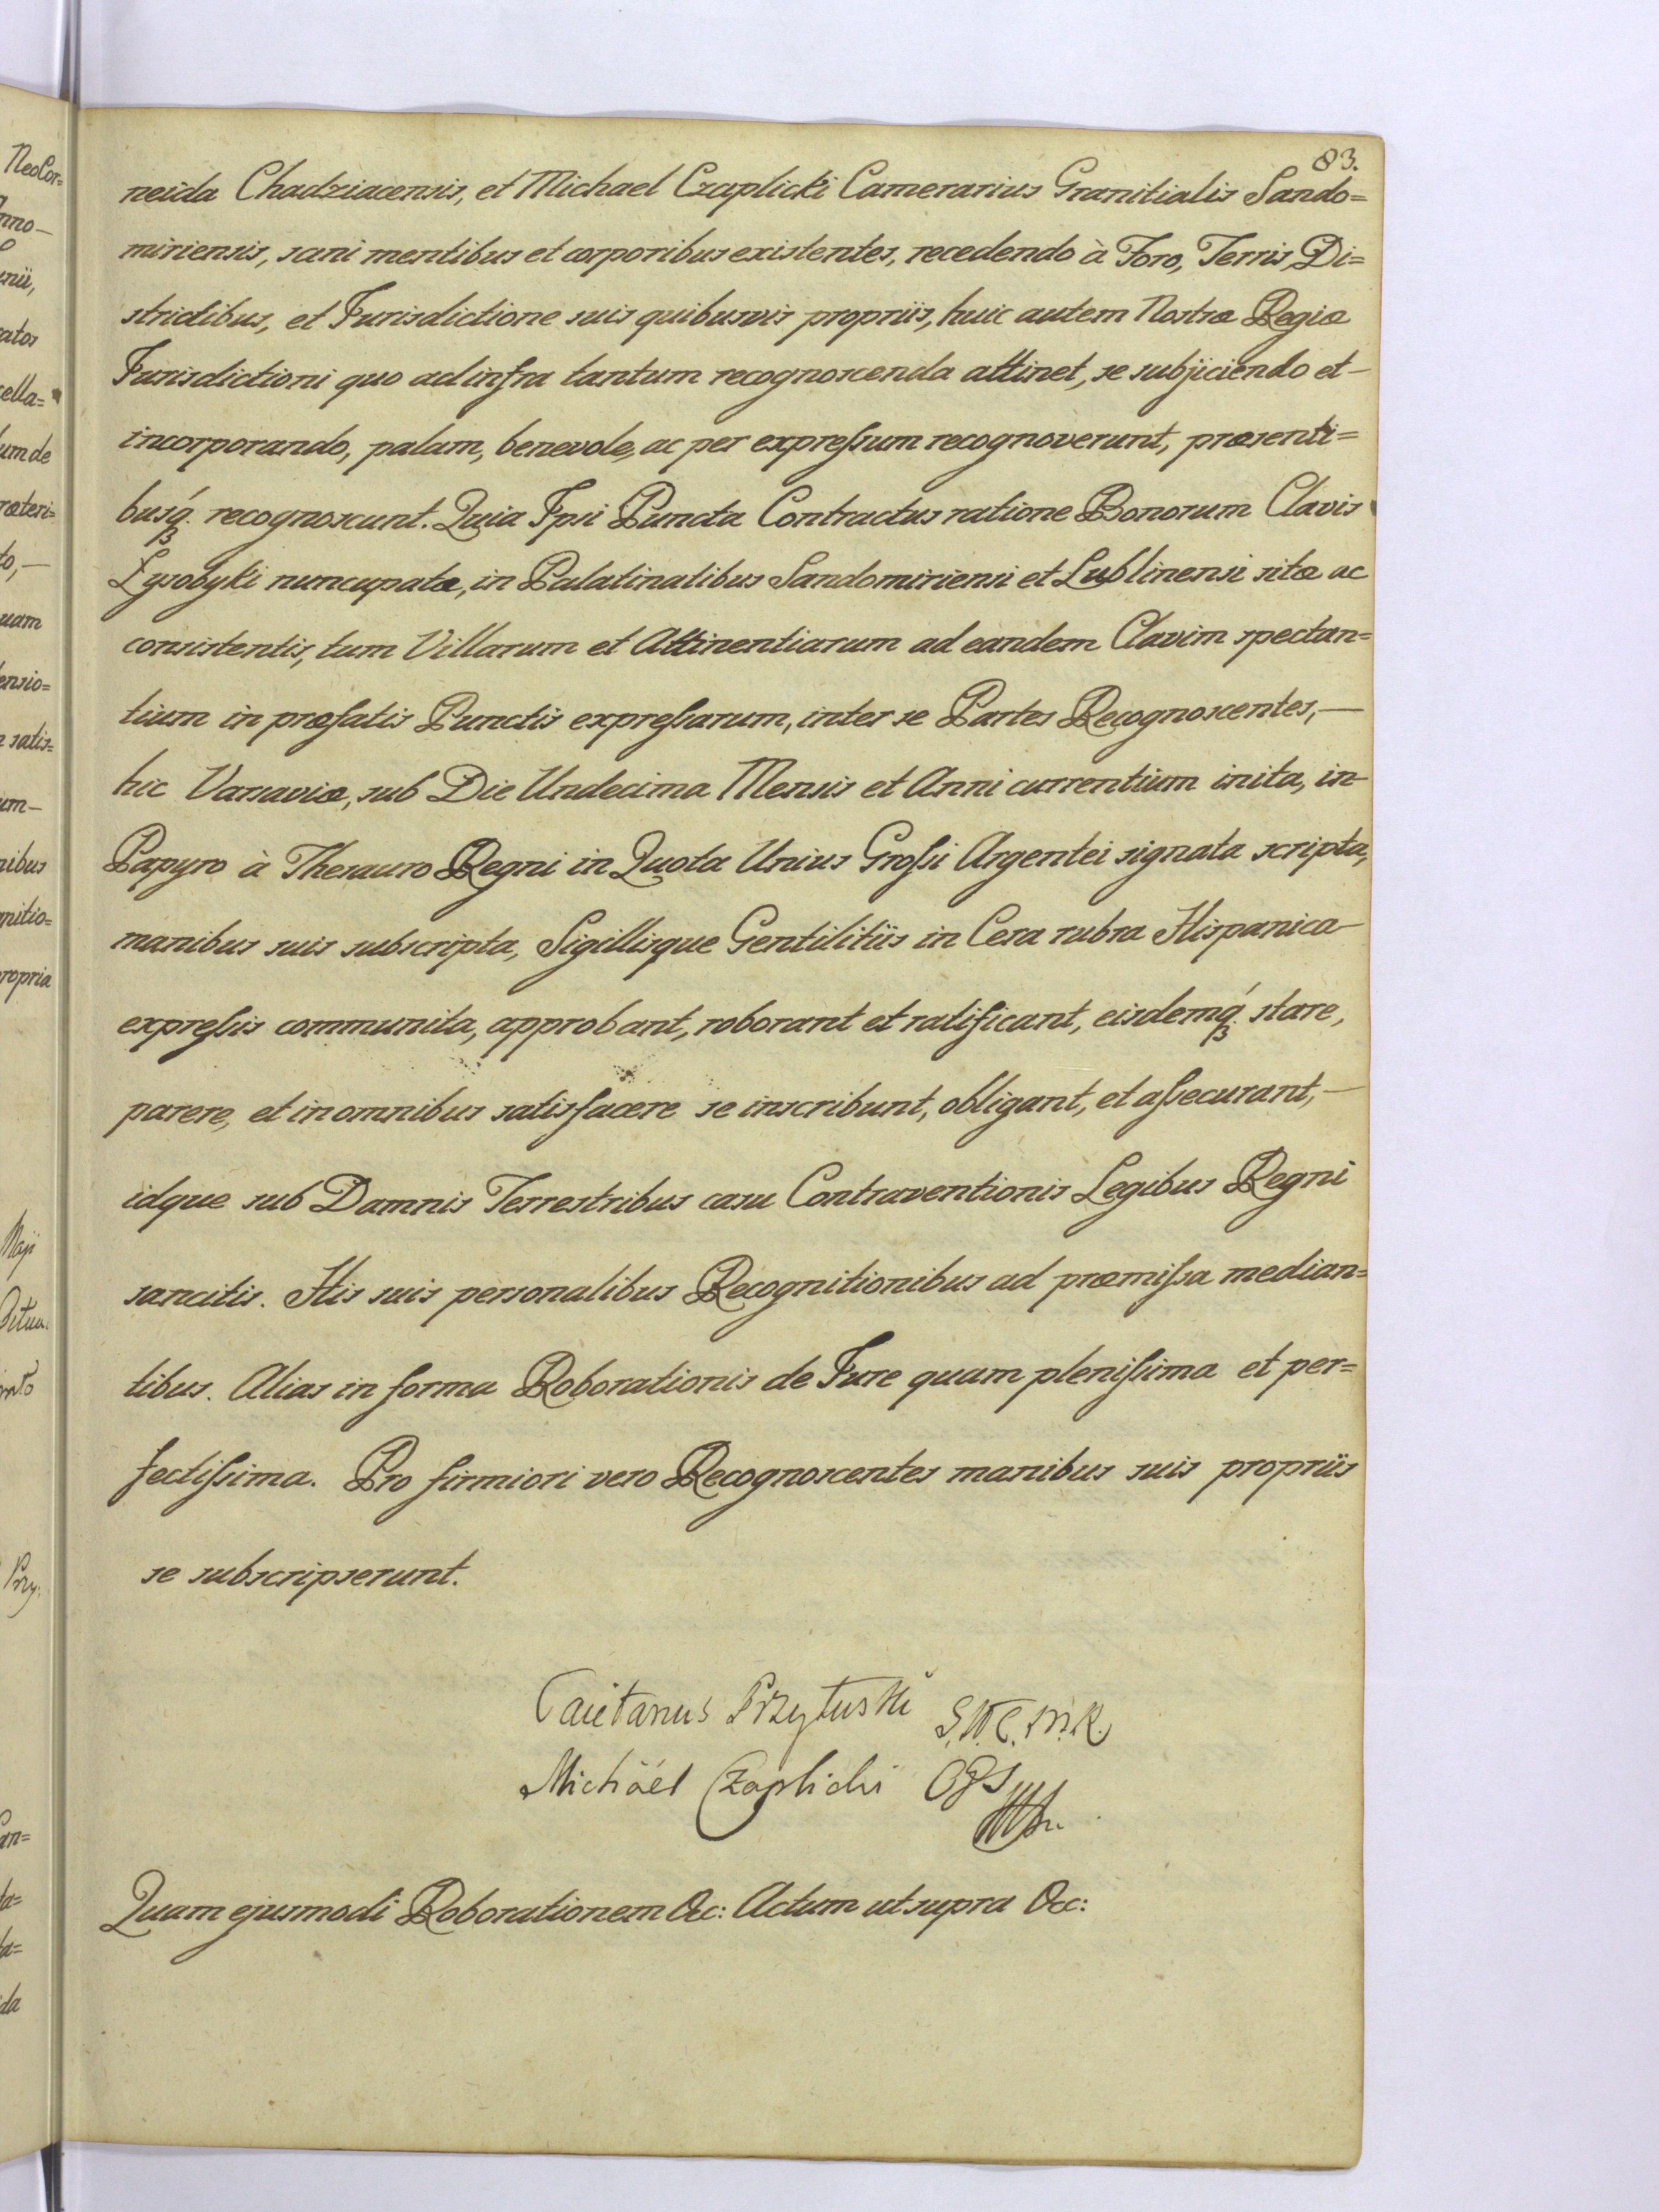 83.
neida Chadziacensis, et Michael Czaplicki Camerarius Granitialis Sando=
miriensis, sani mentibus et corporibus existentes, recedendo à Foro, Terris, Di=
strictibus, et Jurisdictione suis quibusvis propriis, huic autem Nostræ Regiæ
Jurisdictioni quo ad infra tantum recognoscenda attinet, se subjiciendo et—
incorporando, palam, benevole, ac per expreſsum recognoverunt, præsenti=
busq́ꝫ recognoscunt. Quia Ipsi Puncta Contractus ratione Bonorum Clavis
Łysobyki nuncupatæ, in Palatinatibus Sandomiriensi et Lublinensi sitæ ac
consistentis, tum Villarum et Attinentiarum ad eandem Clavim spectan=
tium in præfatis Punctis expreſsarum, inter se Partes Recognoscentes,—
hic Varsaviæ, sub Die Undecima Mensis et Anni currentium inita, in—
Papyro à Thesauro Regni in Quota Unius Groſsi Argentei signata scripta,
manibus suis subscripta, Sigillisque Gentilitiis in Cera rubra Hispanica—
expreſsis communita, approbant, roborant et ratificant, eisdemq́ꝫ stare,
parere, et in omnibus satisfacere se inscribunt, obligant, et aſsecurant,—
idque sub Damnis Terrestribus casu Contraventionis Legibus Regni
sancitis. His suis personalibus Recognitionibus ad præmiſsa median=
tibus. Alias in forma Roborationis de Jure quam pleniſsima et per=
fectiſsima. Pro firmiori vero Recognoscentes manibus suis propriis
se subscripserunt.
Caietanus Przyłuski
Michäel Czaplicki
Quam ejusmodi Roborationem &c: Actum ut supra &c: